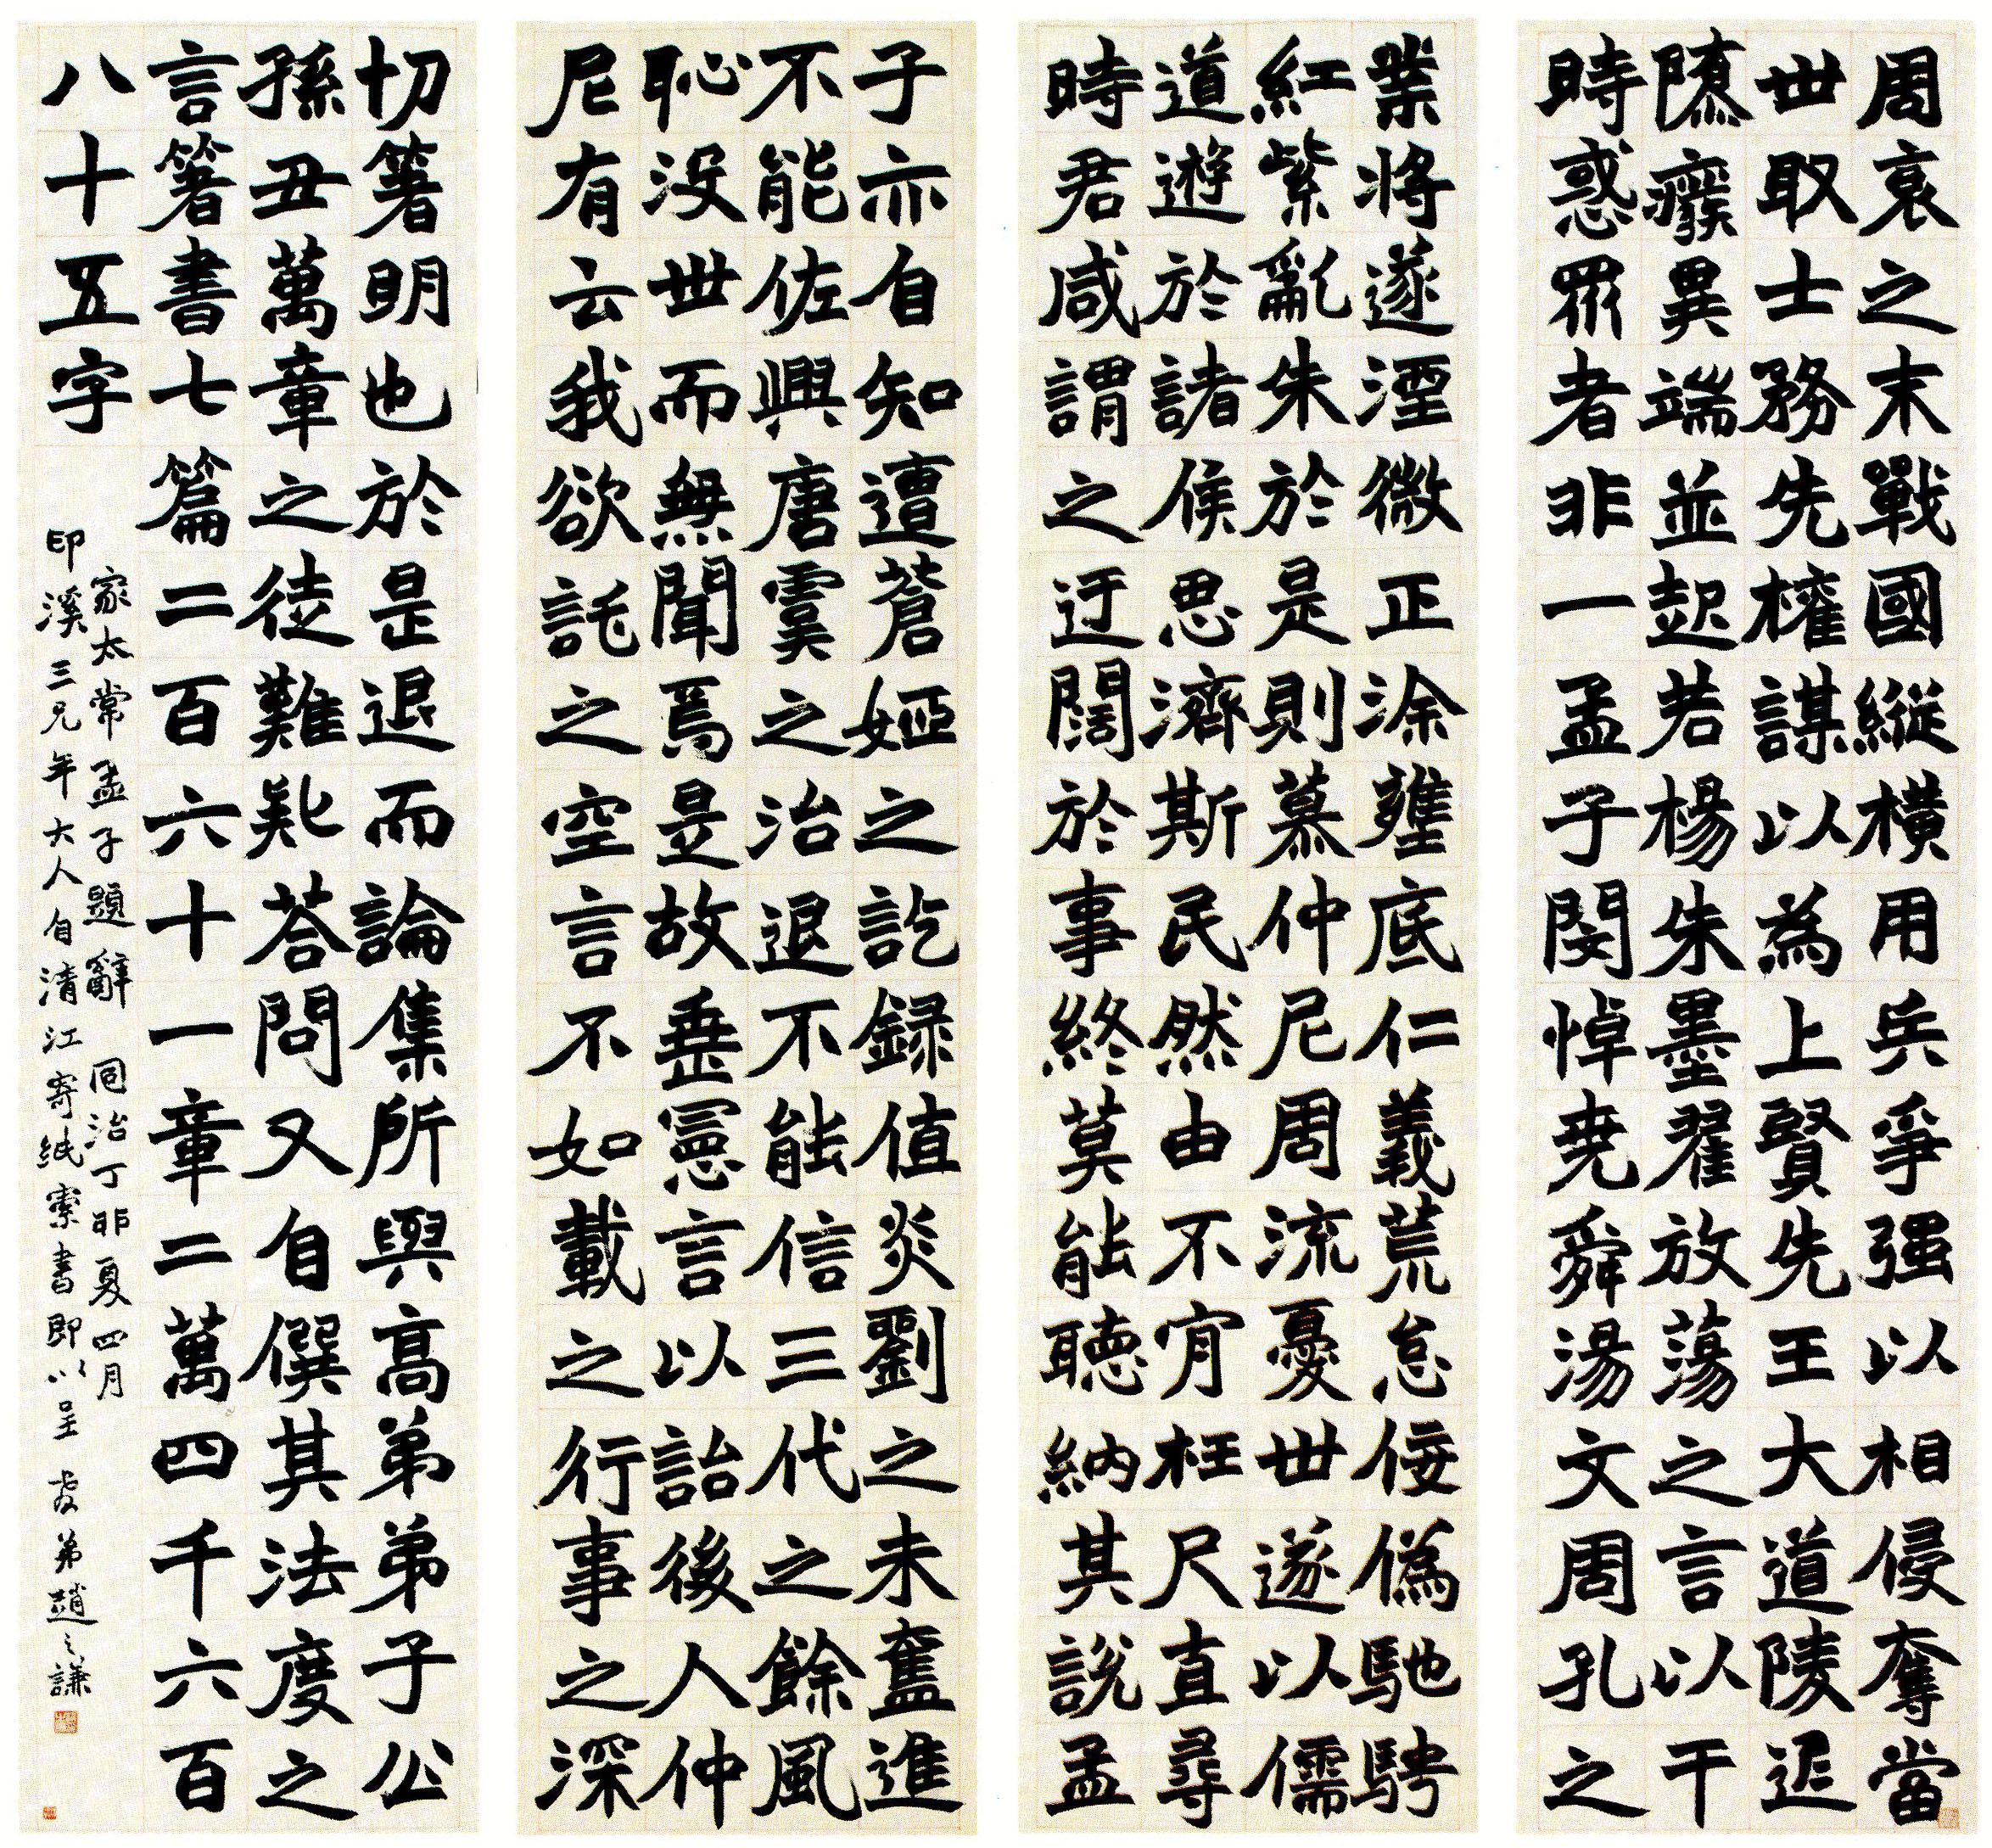 周衰之末戰國縱橫用兵爭强以相侵奪當
世取士務先權謀以為上賢先王大道陵遲
隳癈異端並起若楊朱墨翟放蕩之言以干
時惑眾者非一孟子閔悼堯舜湯文周孔之
業將遂湮微正涂壅底仁義荒怠佞偽馳騁
紅紫亂朱於是則慕仲尼周流憂世遂以儒
道遊於諸侯思濟斯民然由不肯枉尺直尋
時君咸謂之迂闊於事終莫能聽納其說孟
子亦自知遭蒼姬之訖録值炎劉之未奮進
不能佐興唐虞之治退不能信三代之餘風
恥沒世而無聞焉是故垂憲言以詒後人仲
尼有云我欲託之空言不如載之行事之深
切箸明也於是退而論集所與高弟弟子公
孫丑萬章之徒難疑荅問又自僎其法度之
言箸書七篇二百六十一章二萬四千六百
八十五字
家太常孟子題辭 同治丁卯夏四月
印溪三兄年大人自清江寄紙索書即以呈 教弟趙之謙